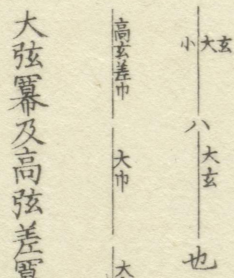 小大玄 八大玄也
高玄差巾 大巾 大
大弦冪及高弦差冪